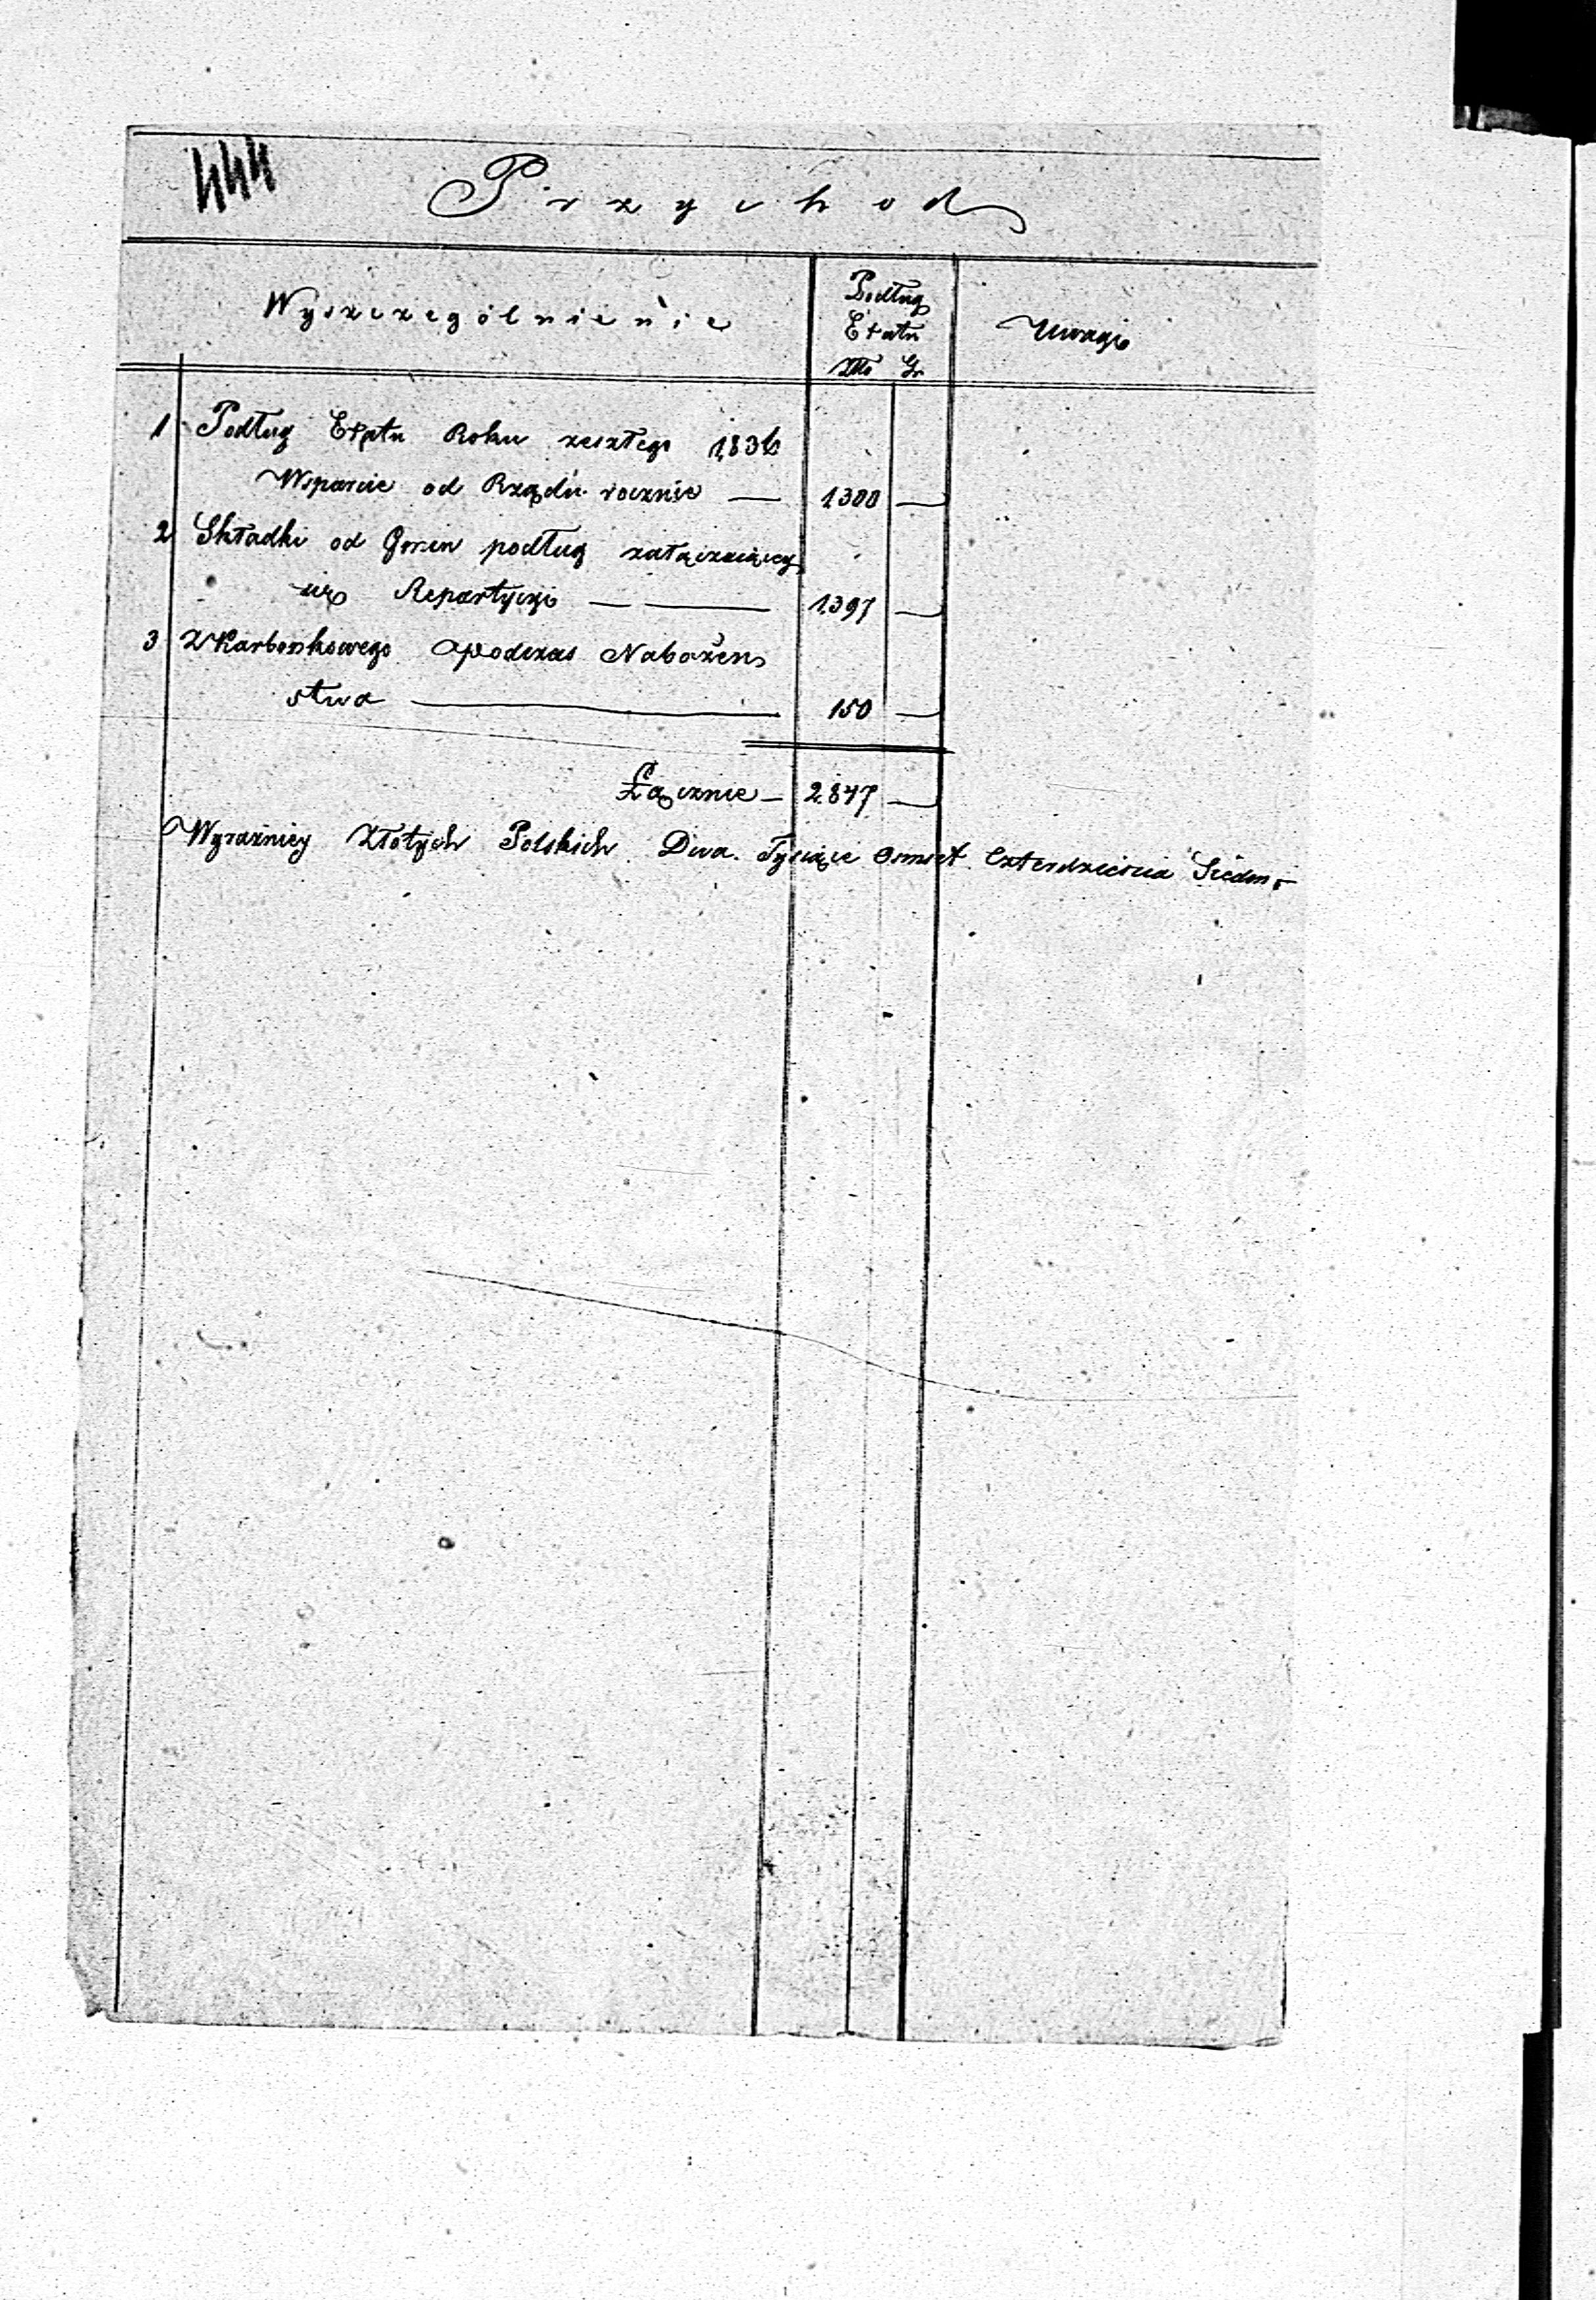 444
Przychod
Wyszczególnienie
Podług
Etatu
Złło Gr
Uwagi
1 Podług Etatu Roku zeszłego 1836
Wsparcie od Rządu rocznie — 1300 —
2 Składki od Gmin podług załączaiącey
się Repartycyi — — 1397 —
3 Z Karbonkowego Podczas Nabożen
stwa — 150 —
Łącznie — 2847 —
Wyraźniey Złotych Polskich Dwa Tysiące Osmset Czterdzieścia Siedm